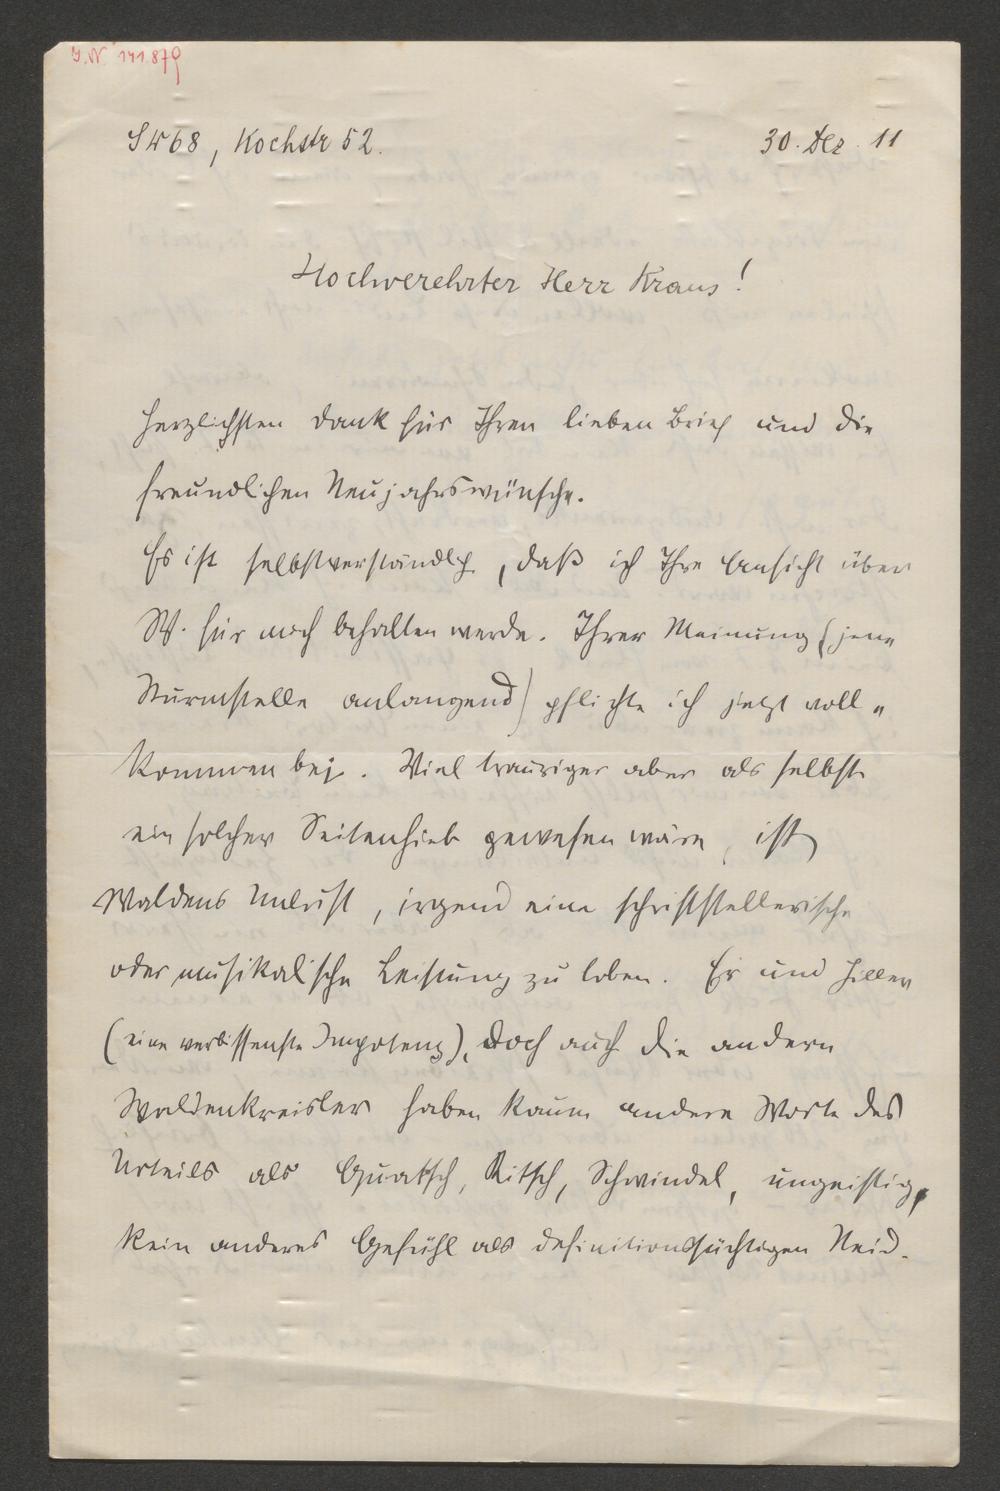 I.N. 141.879
SW68, Kochstr 52.
30. Dez. 11
Hochverehrter Herr Kraus!
Herzlichsten Dank für Ihren lieben Brief und die
freundlichen Neujahrswünsche.
Es ist selbstverständlich, daß ich Ihre Ansicht über
W. für mich behalten werde. Ihrer Meinung (jene
Sturmstelle anlangend) pflichte ich jetzt voll-
kommen bei. Viel trauriger aber als selbst
ein solcher Seitenhieb gewesen wäre, ist
Waldens Unlust, irgend eine schriftstellerische
oder musikalische Leistung zu loben. Er und Hiller
(eine verbissenste Impotenz), doch auch die andern
Waldenkreisler haben kaum andere Worte des
Urteils als Quatsch, Kitsch, Schwindel, ungeistig,
kein anderes Gefühl als definitionssüchtigen Neid.